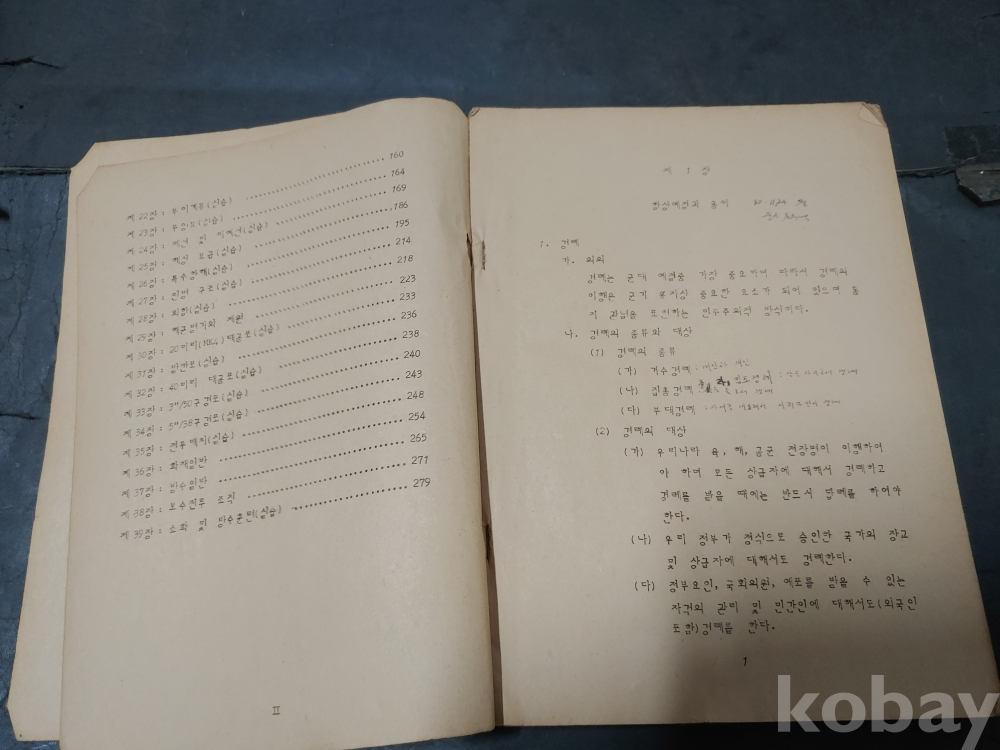 제 22장 : 부이계류(실습) 160
제 23장 : 투양묘(실습) 164
제 24장 : 및 (실습) 169
제 25장 : 해상 보급(실습) 186
제 26장 : 특수항해(실습) 195
제 27장 : 인명 구조(실습) 214
제 28장 : (실습) 218
제 29장 : 223
제 30장 : 20미리 대공포(실습) 233
제 31장 : (실습) 236
제 32장 : 40미리 대공포(실습) 238
제 33장 : 3"/50구경포(실습) 240
제 34장 : 5"/38구경포(실습) 243
제 35장 : 전투배치(실습) 248
제 36장 : 화재일반 254
제 37장 : 방수일반 265
제 38장 : 보수전투 조직 271
제 39장 : 소화 및 방수훈련(실습) 279
II
제 1 장
함상예절의
1. 경례
가. 의의
경례는 군대 예절중 가장 중요하며 따라서 경례의
이행은 군기 유지상 중요한 요소가 되어 있으며 동
지 관념을 표현하는 민주주의적 방식이다.
나. 경례의 종류와 대상
(1) 경례의 종류
(가) 거수경례
(나) 집총경례
(다) 부대경례
(2) 경례의 대상
(가) 우리나라 육, 해, 공군 전장병이 이행하여
야 하며 모든 상급자에 대해서 경례하고
경례를 받을 때에는 반드시 답례를 하여야
한다.
(나) 우리 정부가 정식으로 승인한 국가의 장교
및 상급자에 대해서도 경례한다.
(다) 정부요인, 국회의원, 예포를 받을 수 있는
자격의 관리 및 민간인에 대해서도(외국인
포함)경례를 한다.
1
kobay